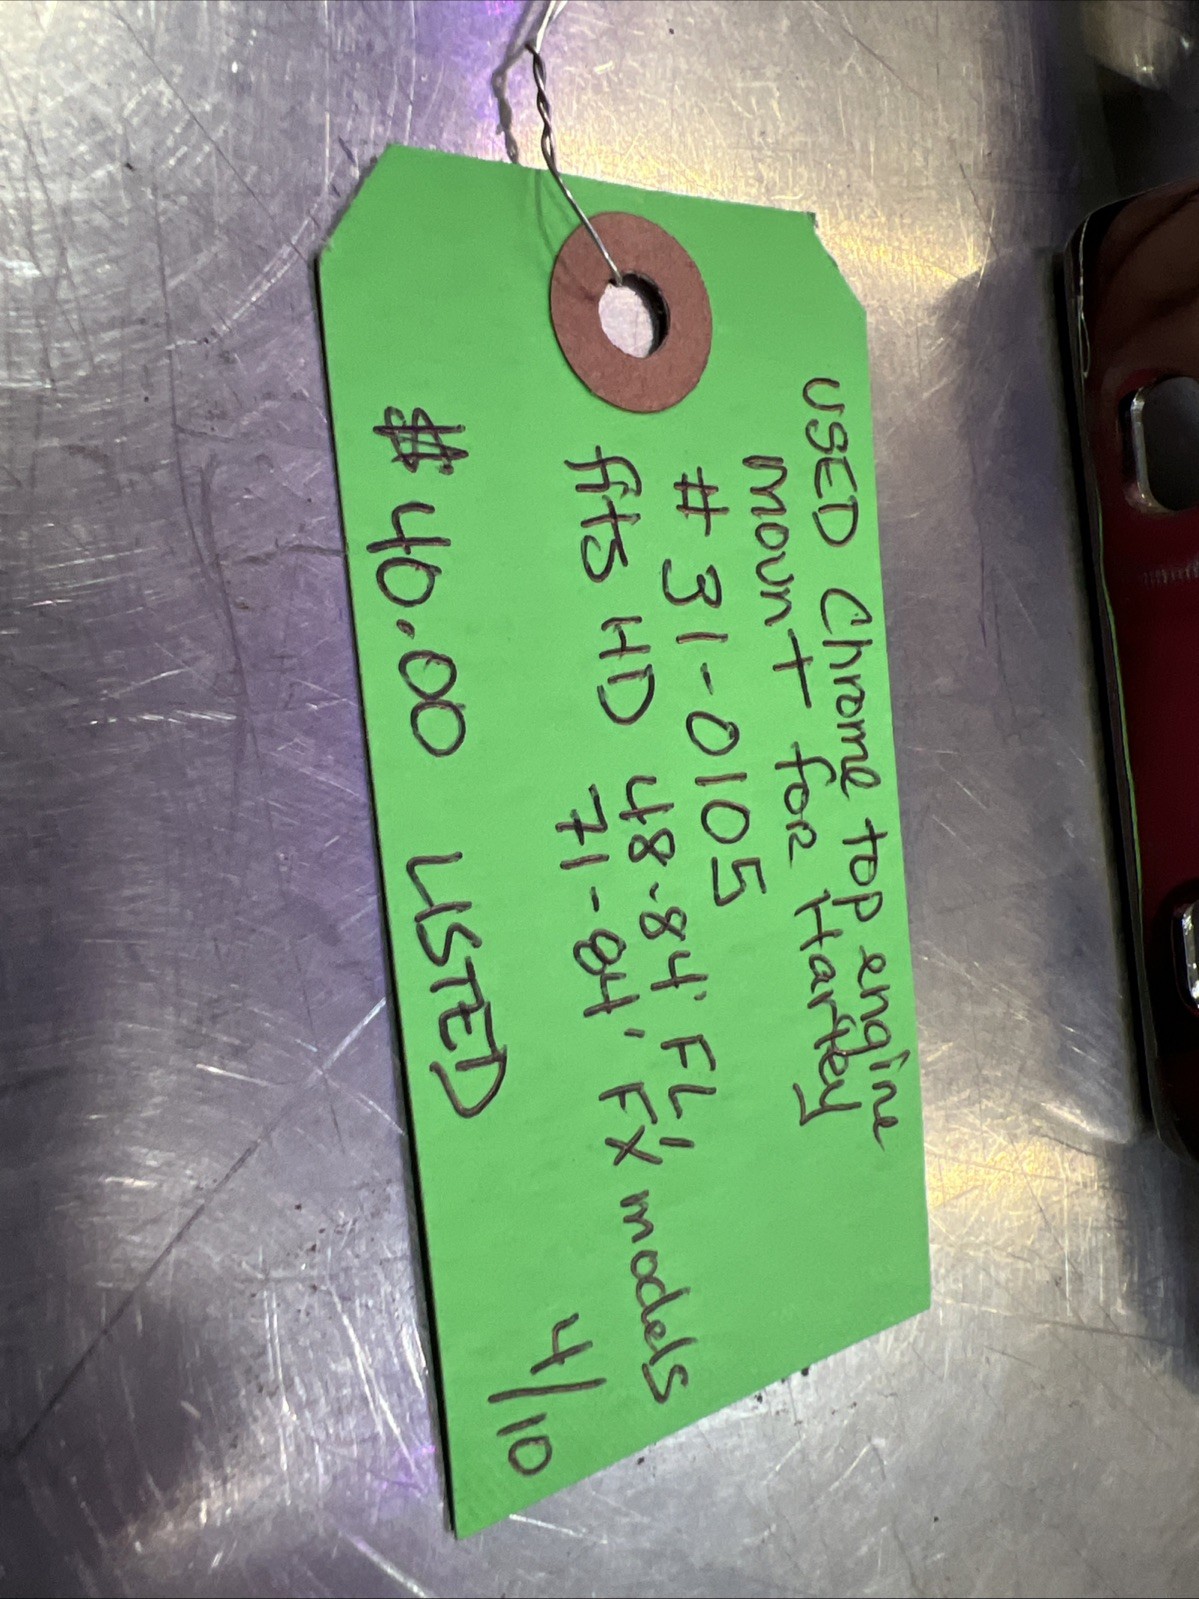 USED Chrome top engine
mount for Harley
# 31-0105
fits HD 48-84' FL,
71-84', FX models
$40.00 LISTED 4/10